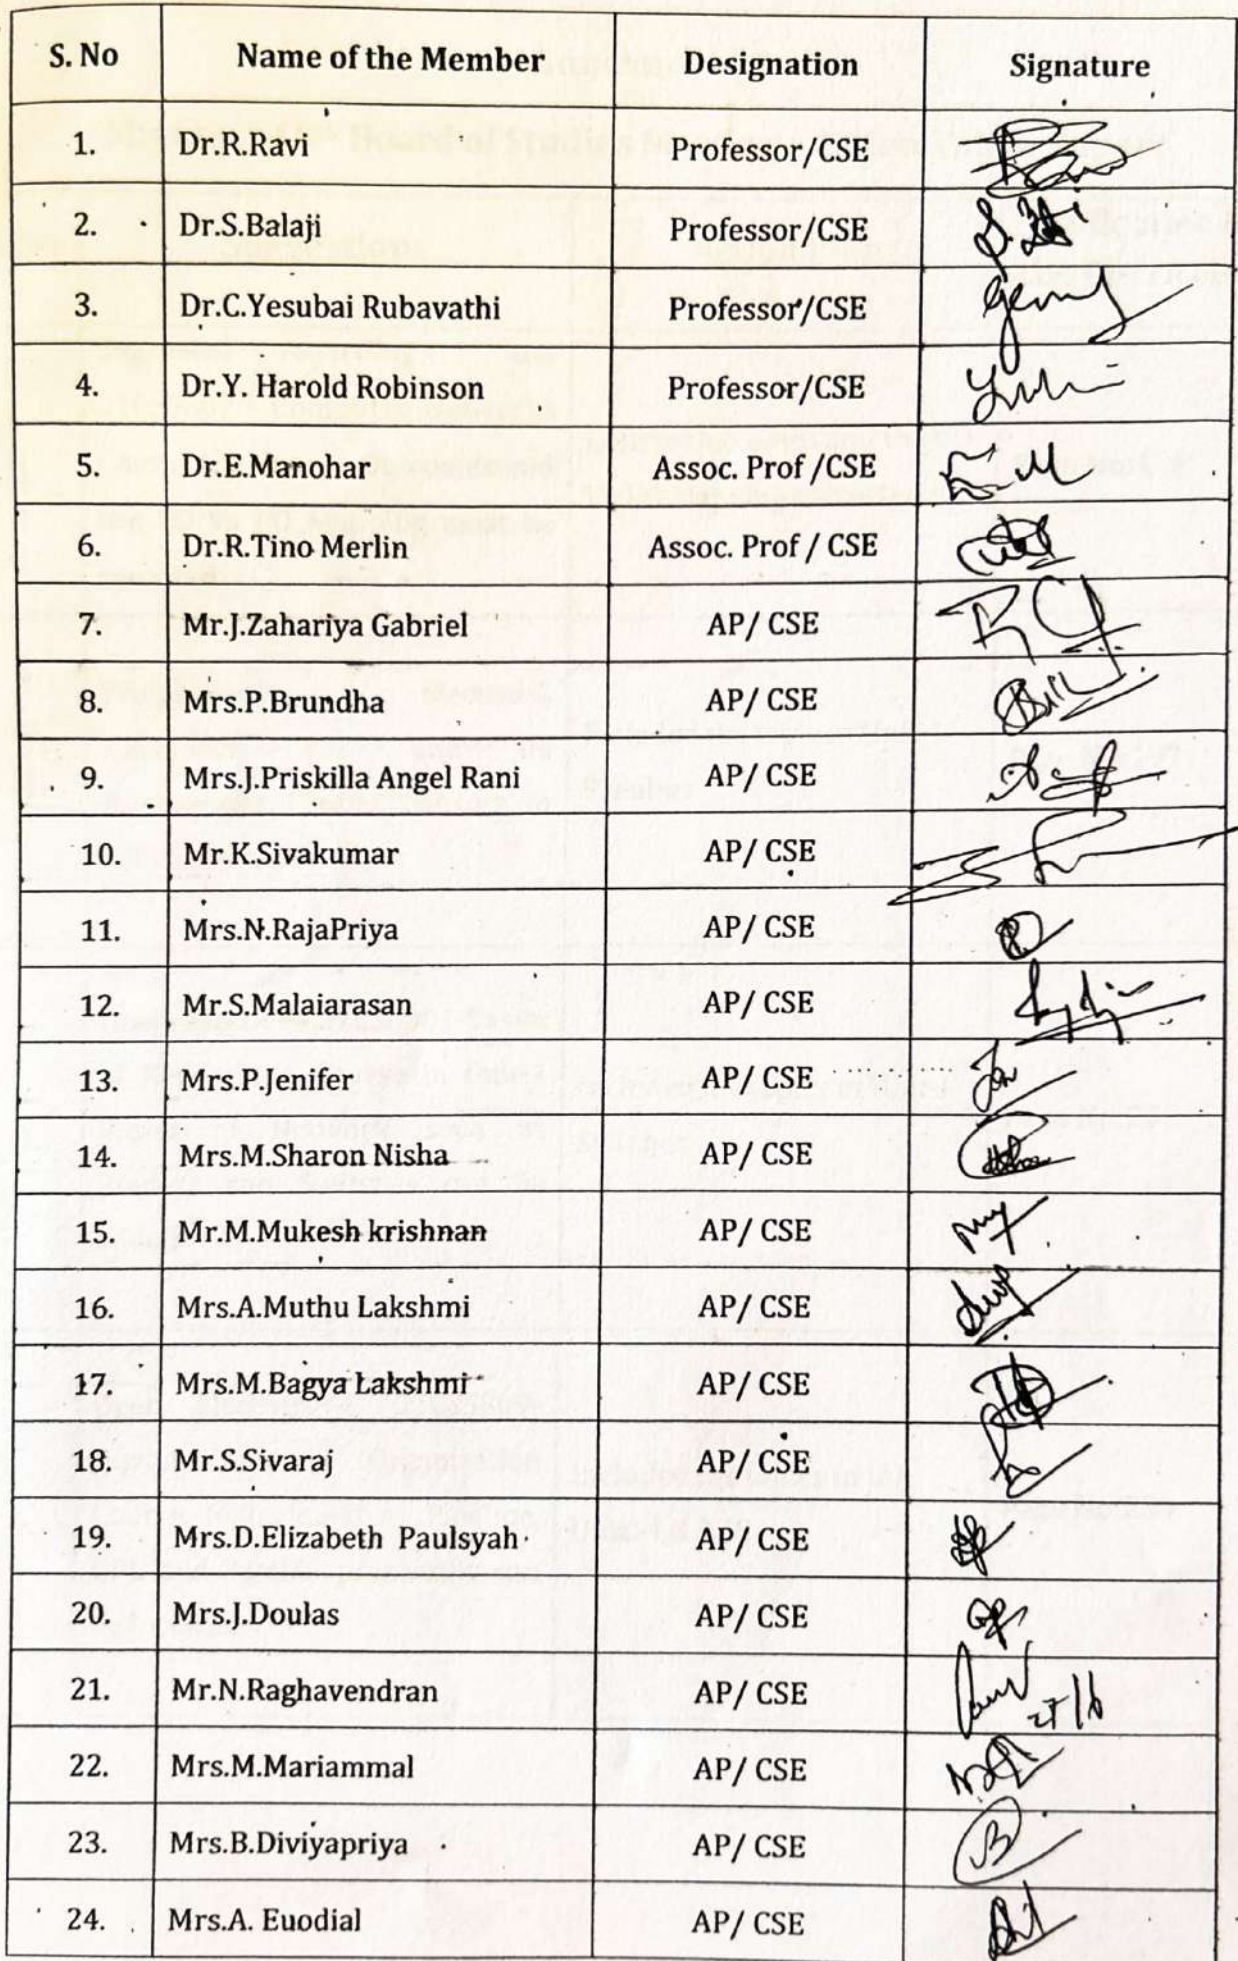 S. No Name of the Member Designation Signature
1. Dr.R.Ravi Professor/CSE
2. Dr.S.Balaji Professor/CSE
3. Dr.C.Yesubai Rubavathi Professor/CSE
4. Dr.Y. Harold Robinson Professor/CSE
5. Dr.E.Manohar Assoc. Prof /CSE
6. Dr.R.Tino Merlin Assoc. Prof / CSE
7. Mr.J.Zahariya Gabriel AP/ CSE
8. Mrs.P.Brundha AP/ CSE
9. Mrs.J.Priskilla Angel Rani AP/ CSE
10. Mr.K.Sivakumar AP/ CSE
11. Mrs.N.RajaPriya AP/ CSE
12. Mr.S.Malaiarasan AP/ CSE
13. Mrs.P.Jenifer AP/ CSE
14. Mrs.M.Sharon Nisha AP/ CSE
15. Mr.M.Mukesh krishnan AP/ CSE
16. Mrs.A.Muthu Lakshmi AP/ CSE
17. Mrs.M.Bagya Lakshmi AP/ CSE
18. Mr.S.Sivaraj AP/ CSE
19. Mrs.D.Elizabeth Paulsyah AP/ CSE
20. Mrs.J.Doulas AP/ CSE
21. Mr.N.Raghavendran AP/ CSE
22. Mrs.M.Mariammal AP/ CSE
23. Mrs.B.Diviyapriya AP/ CSE
24. Mrs.A. Euodial AP/ CSE